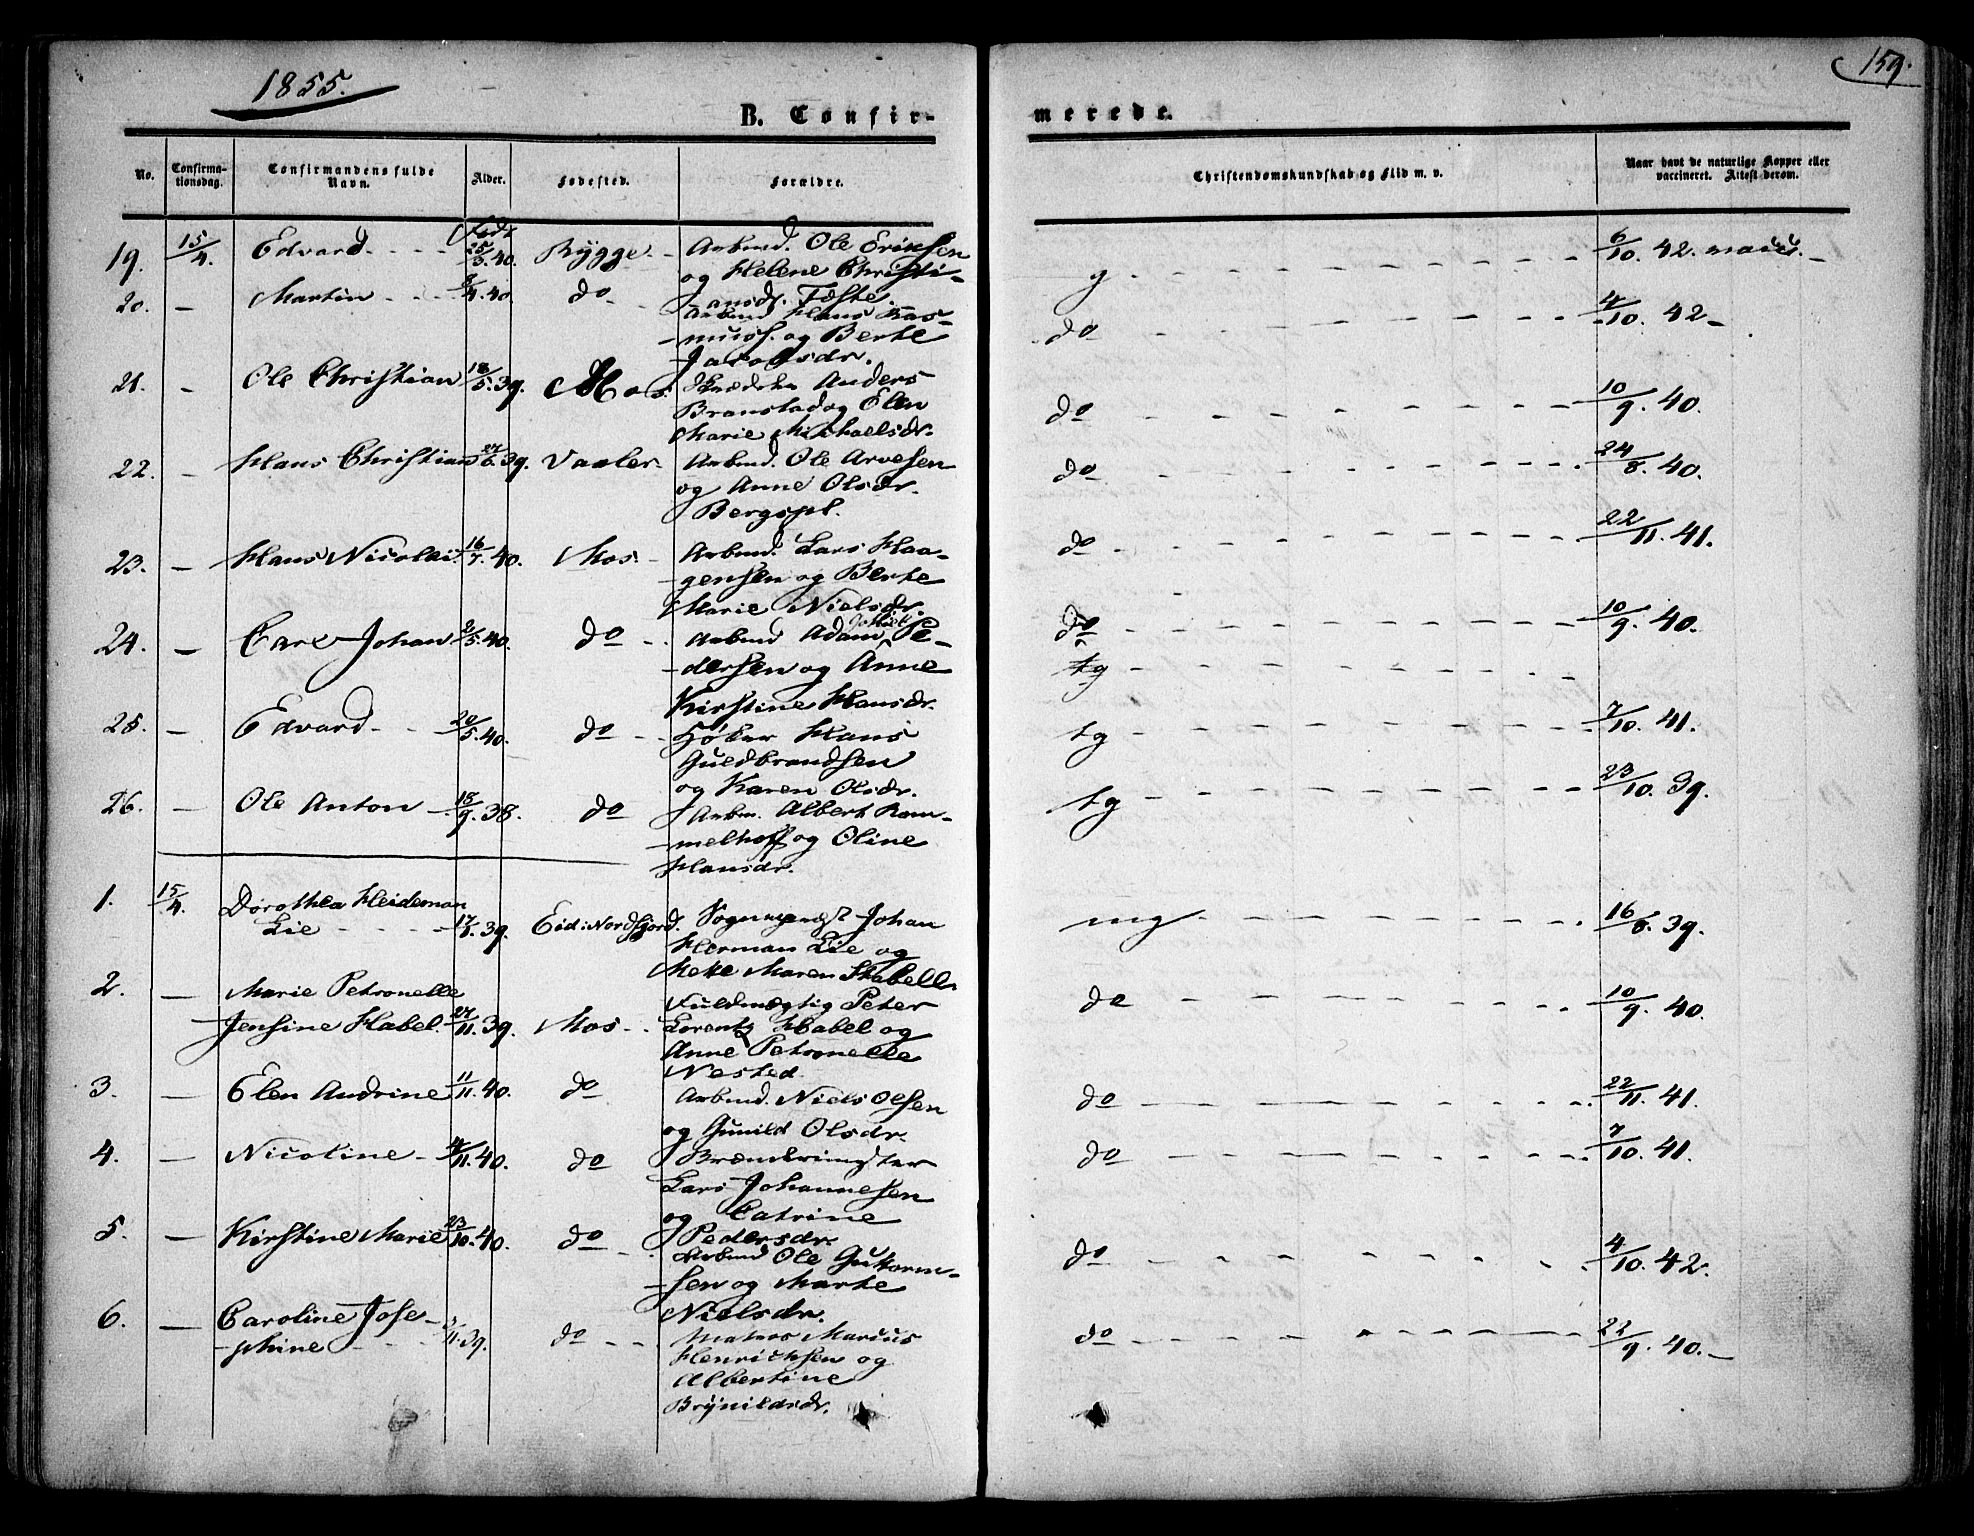 1855.
159.
B. Confir-
merede.
No.
Confirma-
tionsdag.
Confirmandens fulde
Navn.
Alder.
Fødested.
Forældre.
Christendomskundskab og Flid m. v.
Naar havt de naturlige Kopper eller
vaccineret. Attest derom.
Født
19. 15/4. Edvard - - - 25/3.40. Rygge. - Arbmd. Ole Eriksen
og Helene Christi-
ansdr. Tøste.
g - - - 6/10. 42.
20. - Martin - - - 8/4.40. do - Arbmd Hans Ras-
muss. og Berte
Jacobsdr.
do - - - 4/10. 42-
21. - Ole Christian 18/5.39. Mos. Skrædder Anders
Branstad og Elen
Marie Mikkaelsdr.
do - - - 10/9. 40.
22. - Hans Christian 27/6.39. Vaaler. Arbmd. Ole Arvesen
og Anne Olsdr.
Bergspl.
do - - - 24/8. 40.
23. - Hans Nicolai. 16/7.40. Mos. - Arbmd. Lars Haa-
gensen og Berte
Marie Nielsdr.
do - - - 22/11. 41.
24. - Carl Johan 2/5.40. do - Arbmd Adam Pe-
dersen og Anne
Kirstine Hansdr.
do - - - 10/9. 40.
tg - - -
25. - Edvard - - 20/5.40. do - - Høker Hans
Guldbrandsen
og Karen Olsdr.
tg - - - 7/10. 41.
26. - Ole Anton - 18/9.38. do Arbm. Albert Ram-
melhoff og Oline
Hansdr.
tg - - - 23/10. 39.
1. 15/4. Dorothea Heideman
Lie - - - 39. Eid i Nordfjord. Sognepræst Johan
Herman Lie og
Mette Maren Stabell.
mg - - - 16/8. 39.
2. - Marie Petronelle
Jensine Habel. 27/11.39. Mos. Fuldmægtig Peter
Lorentz Habel og
Anne Petronelle
Nested.
do - - - 10/9. 40.
3. - Elen Andrine 11/11.40. do Arbmd. Niels Olsen
og Gunild Olsdr.
do - - - 22/11. 41.
4. - Nicoline - 4/11.40. do
Lars Johannesen
og Catrine
Pedersdr.
do - - - 7/10. 41.
5. - Kirstine Marie 23/10.40. do - Arbmd Ole Guttorm-
sen og Marte
Nielsdr.
do - - - 4/10. 42.
6. - Caroline Jose-
phine - - 11.39. do - - Matros Marcus
Henrichsen og
Albertine
Brynildsdr.
do - - - 22/9. 40.-